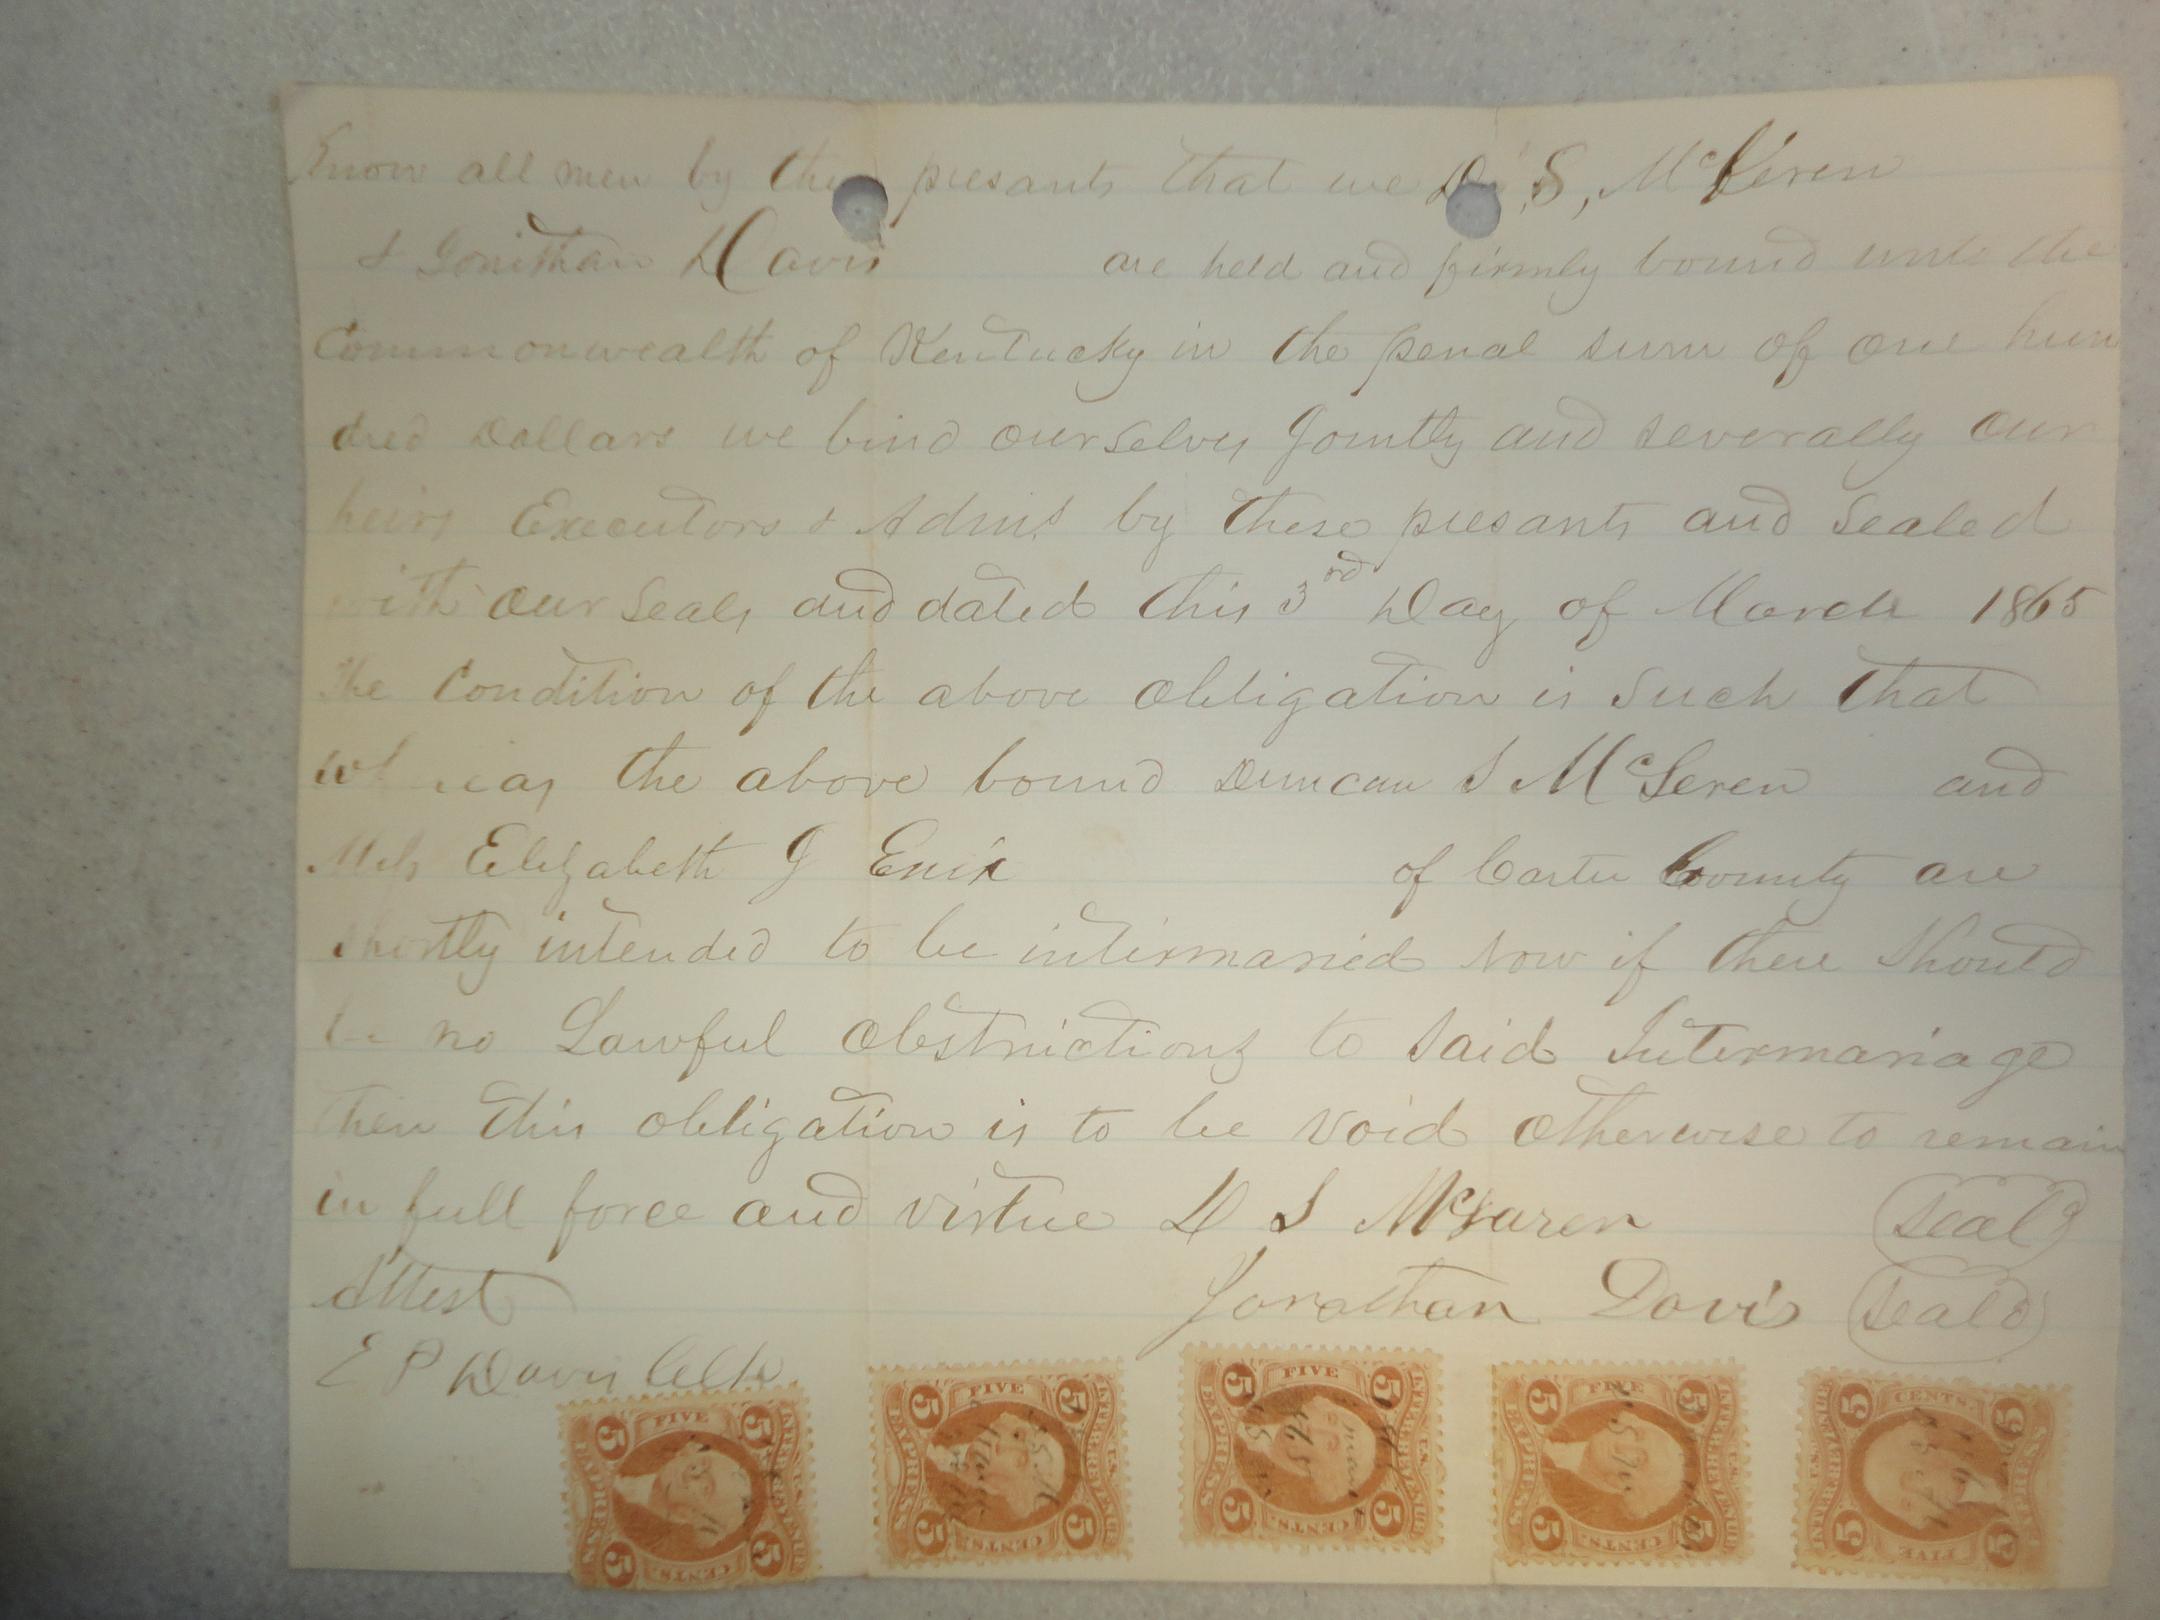 Know all men by these presants that we D. S, McLeren
& Jonithan Davis are held and firmly bound unto the
Commonwealth of Kentucky in the penal sum of one hun
dred Dollars we bind ourselves Jointly and severally our
heirs Executors & Adms by these presants and sealed
with our seals and dated this 3rd Day of March 1865
The Condition of the above obligation is such that
whereas the above bound Duncan S McLeren and
Miss Elizabeth J Enix of Carter County are
shortly intended to be intermaried Now if there should
be no Lawful obstructions to said Intermariage
then this obligation is to be void otherwise to remain
in full force and virtue D S McLaren Seal
Attest Jonathan Davis Seal
E P Davis Clk
FIVE FIVE FIVE FIVE CENTS.
5 5 5 5 5 5 5 5 5 5
EXPRESS INTER.REVENUE EXPRESS INTER.REVENUE EXPRESS INTER.REVENUE EXPRESS INTER.REVENUE INTER.REVENUE EXPRESS
5 5 5 5 5 5 5 5 5 5
CENTS. CENTS. CENTS. CENTS. FIVE